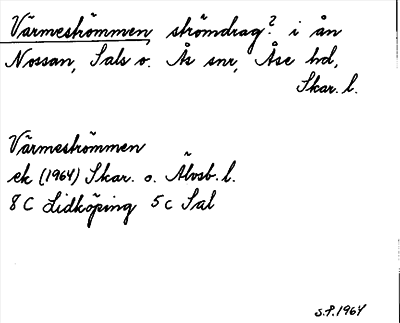 Värmeströmmen, strömdrag? i ån
Nossan, Sals o. Ås snr, Åse hd,
Skar. l.
Värmeströmmen
ek (1964) Skar. o. Älvsb. l.
8 C Lidköping 5 c Sal
S.F. 1964